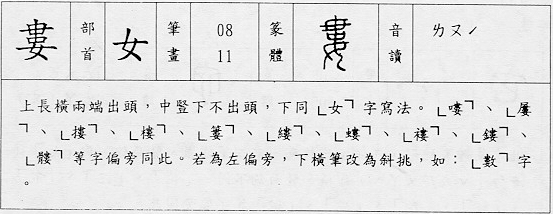 婁 部首 女 筆畫 08 11 篆體 婁 音讀 ㄌㄡˊ
上長橫兩端出頭,中豎下不出頭,下同「女」字寫法。「嘍」、「屢
」、「摟」、「樓」、「蔞」、「縷」、「螻」、「褸」、「鏤」、
「髏」等字偏旁同此。若為左偏旁,下橫筆改為斜挑,如:「數」字
。